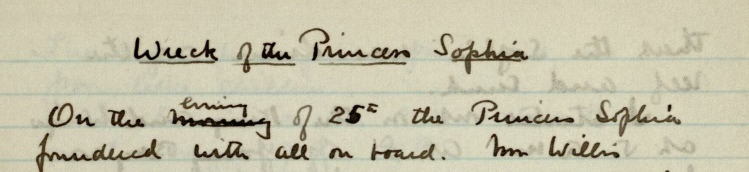 Wreck of the Princess Sophia
evening
On the morning of 25th the Princess Sophia
foundered with all on board. Mr Willis